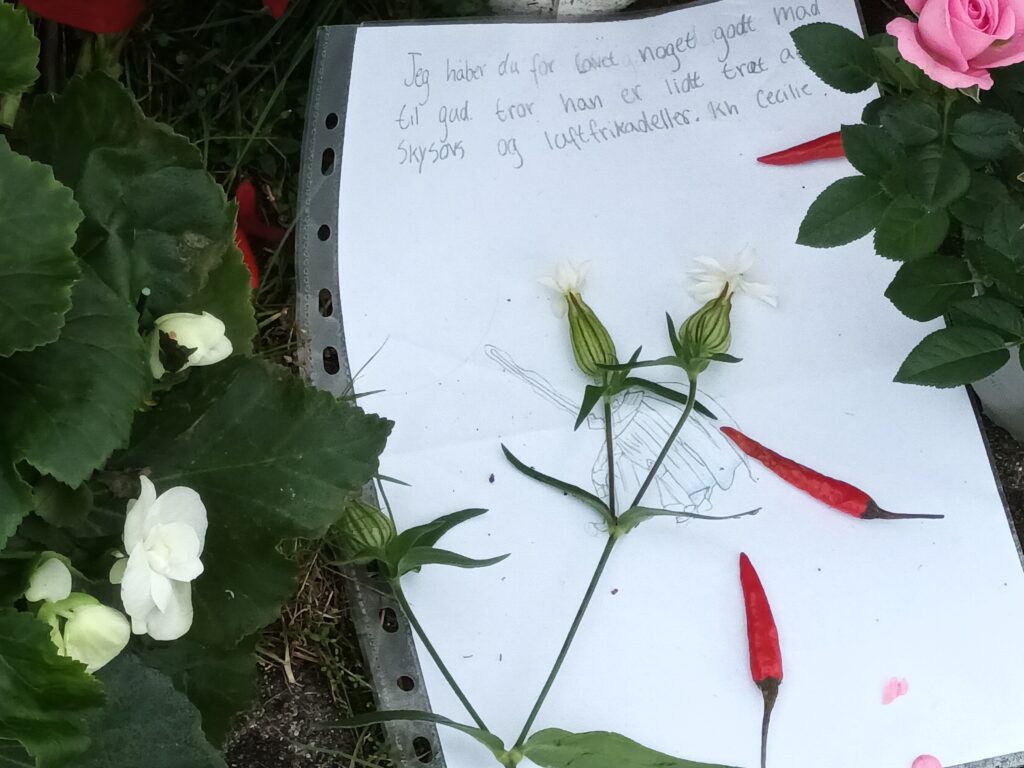 Jeg håber du for lavet noget godt mad
til gud. tror han er lidt træt a
skysovs og luftfrikadeller. Kh Cecilie